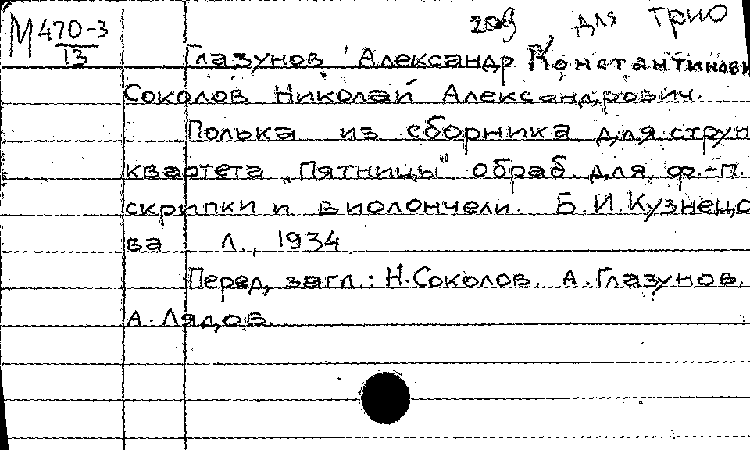 209 для трио
М 470-3
13
Глазунов Александр Константинови
Соколов Николай Александрович.
Полька из сборника для струн
квартета „Пятницы" обраб. для ф.-п.
скрипки и виолончели. Б.И.Кузнецо
ва Л., 1934
Перед загл.: Н.Соколов. А.Глазунов.
А.Лядов.